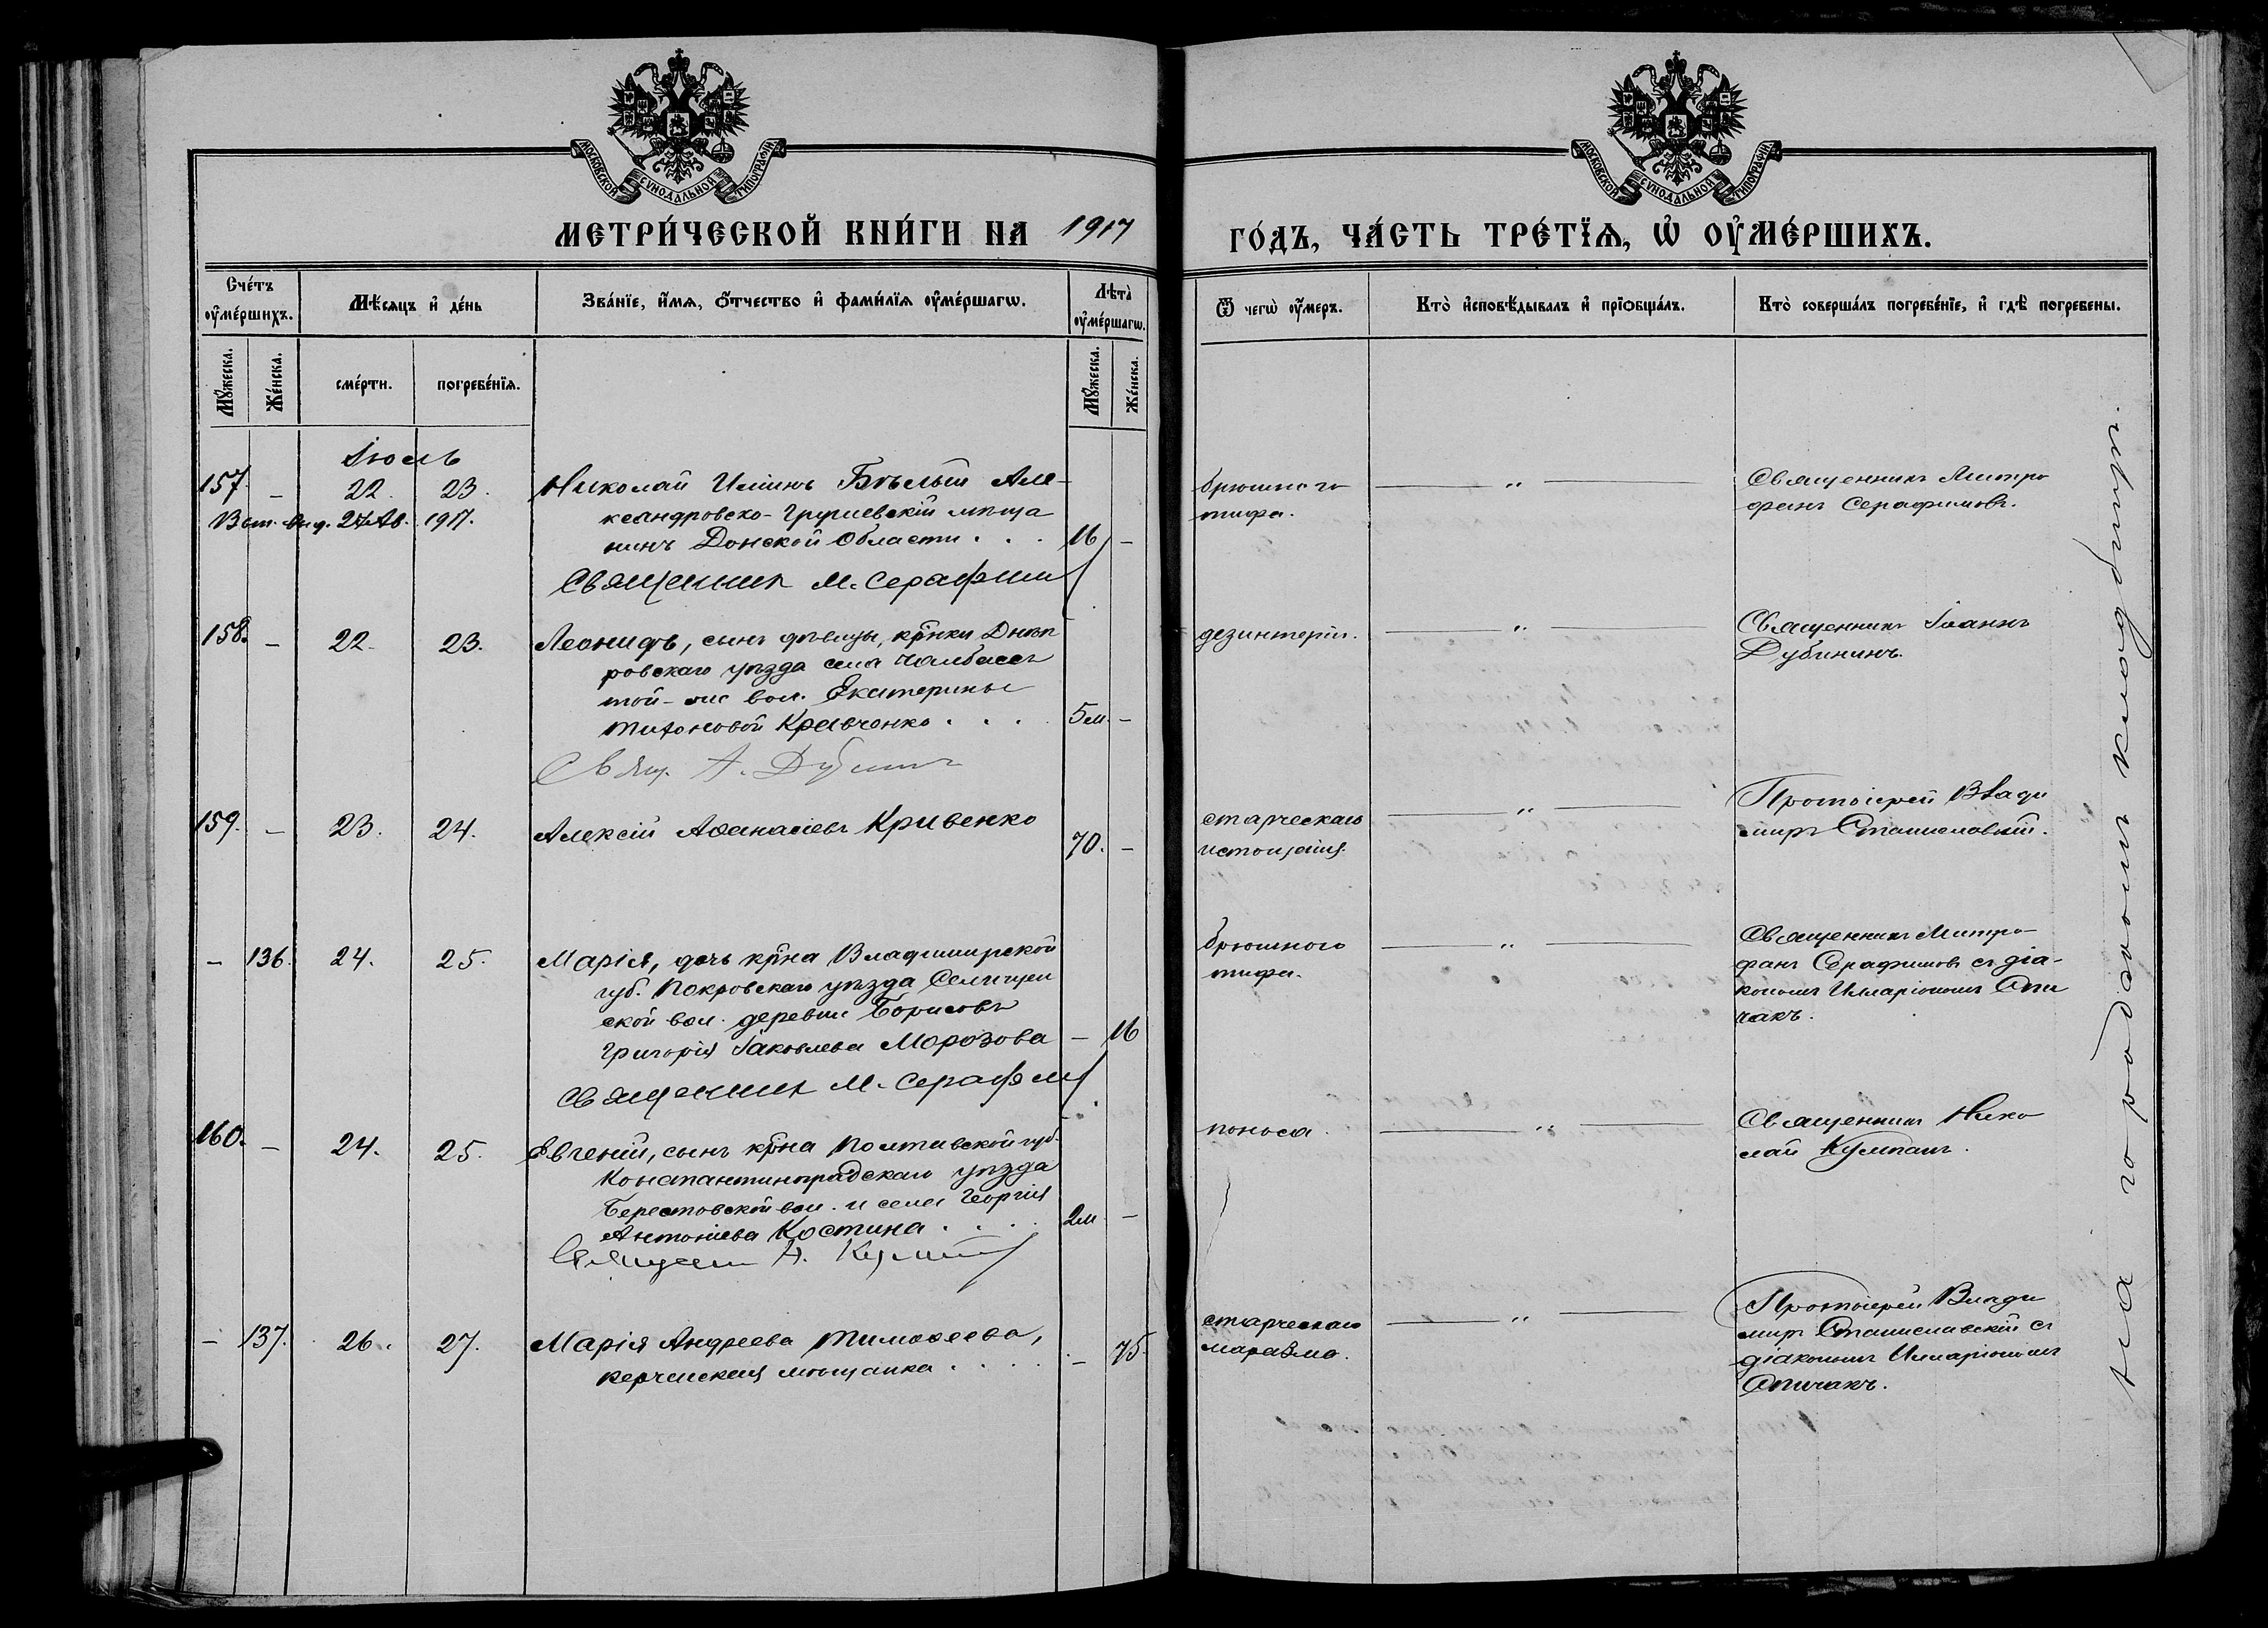 МОСКОВСКОЙ СУНОДАЛЬНОЙ ТИПОГРАФІИ
МОСКОВСКОЙ СУНОДАЛЬНОЙ ТИПОГРАФІИ
МЕТРИ́ЧЕСКОЙ КНИ́ГИ НА 1917
ГО́ДЪ, ЧА́СТЬ ТРЕ́ТЇѦ, Ѡ ОУМЕ́РШИХЪ.
Сче́тъ оуме́ршихъ.
Мѣ́сяцъ и де́нь
Зва́нїе, и́мѧ, ѻ́тчество и фами́лїѧ оуме́ршагѡ.
Лѣта̀ оуме́ршагѡ.
Ѿ чегѡ̀ оу́меръ.
Кто̀ исповѣ́дывалъ и прїѡбща́лъ.
Кто̀ соверша́лъ погребе́нїе, и гдѣ̀ погребены.
Му́жеска.
Же́нска.
сме́рти.
погребе́нїѧ.
Му́жеска.
Же́нска.
Іюль
157. – 22. 23. Николай Ильинъ Бѣлый Але-
27 Ав. 1917. ксандровско-Грушевскій мѣща
нинъ Донской Области . . . 16 –
Священник М. Серафим
брюшного
тифа.
– „ –
Священникъ Митро
фанъ Серафимовъ.
158. – 22. 23. Леонидъ, сынъ дѣвицы, кр̃нки Днѣп
ровскаго уѣзда села Чалбасс
той же вол. Екатерины
Тихоновой Кравченко . . . 5 м. –
Свящ. Дубинин
дезинтеріи.
– „ –
Священникъ Іоаннъ
Дубининъ.
159. – 23. 24. Алексій Аѳанасіевъ Кривенко 70. –
старческаго
истощенія.
– „ –
Протоіерей Влади
миръ Станиславскій.
– 136. 24. 25. Марія, дочь кр̃на Владимирской
губ. Покровскаго уѣзда
ской вол. деревни Борисовъ
Григорія Іаковлева Морозова – 16
Священник М. Серафим
брюшного
тифа.
– „ –
Священникъ Митро-
фанъ Серафимовъ съ діа-
кономъ Илларіономъ Опи
чакъ.
160. – 24. 25. Евгеній, сынъ кр̃на Полтавской губ.
Константиноградскаго уѣзда
Берестовской вол. и села Георгія
Антоніева Костина . . . . 2 м –
поноса.
– „ –
Священникъ Нико
лай Кумпанъ.
– 137. 26. 27. Марія Андреева Тимоѳеева,
керченская мѣщанка . . . . – 75.
старческаго
маразма.
– „ –
Протоіерей Влади
миръ Станиславскій съ
діакономъ Илларіономъ
Опичакъ.
на городскомъ кладбищѣ.